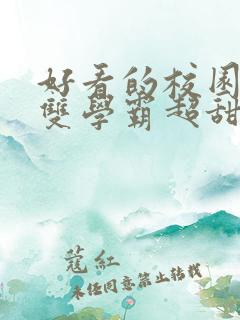 好看的校园
雙學霸超甜
蔻紅
未经同意禁止转载